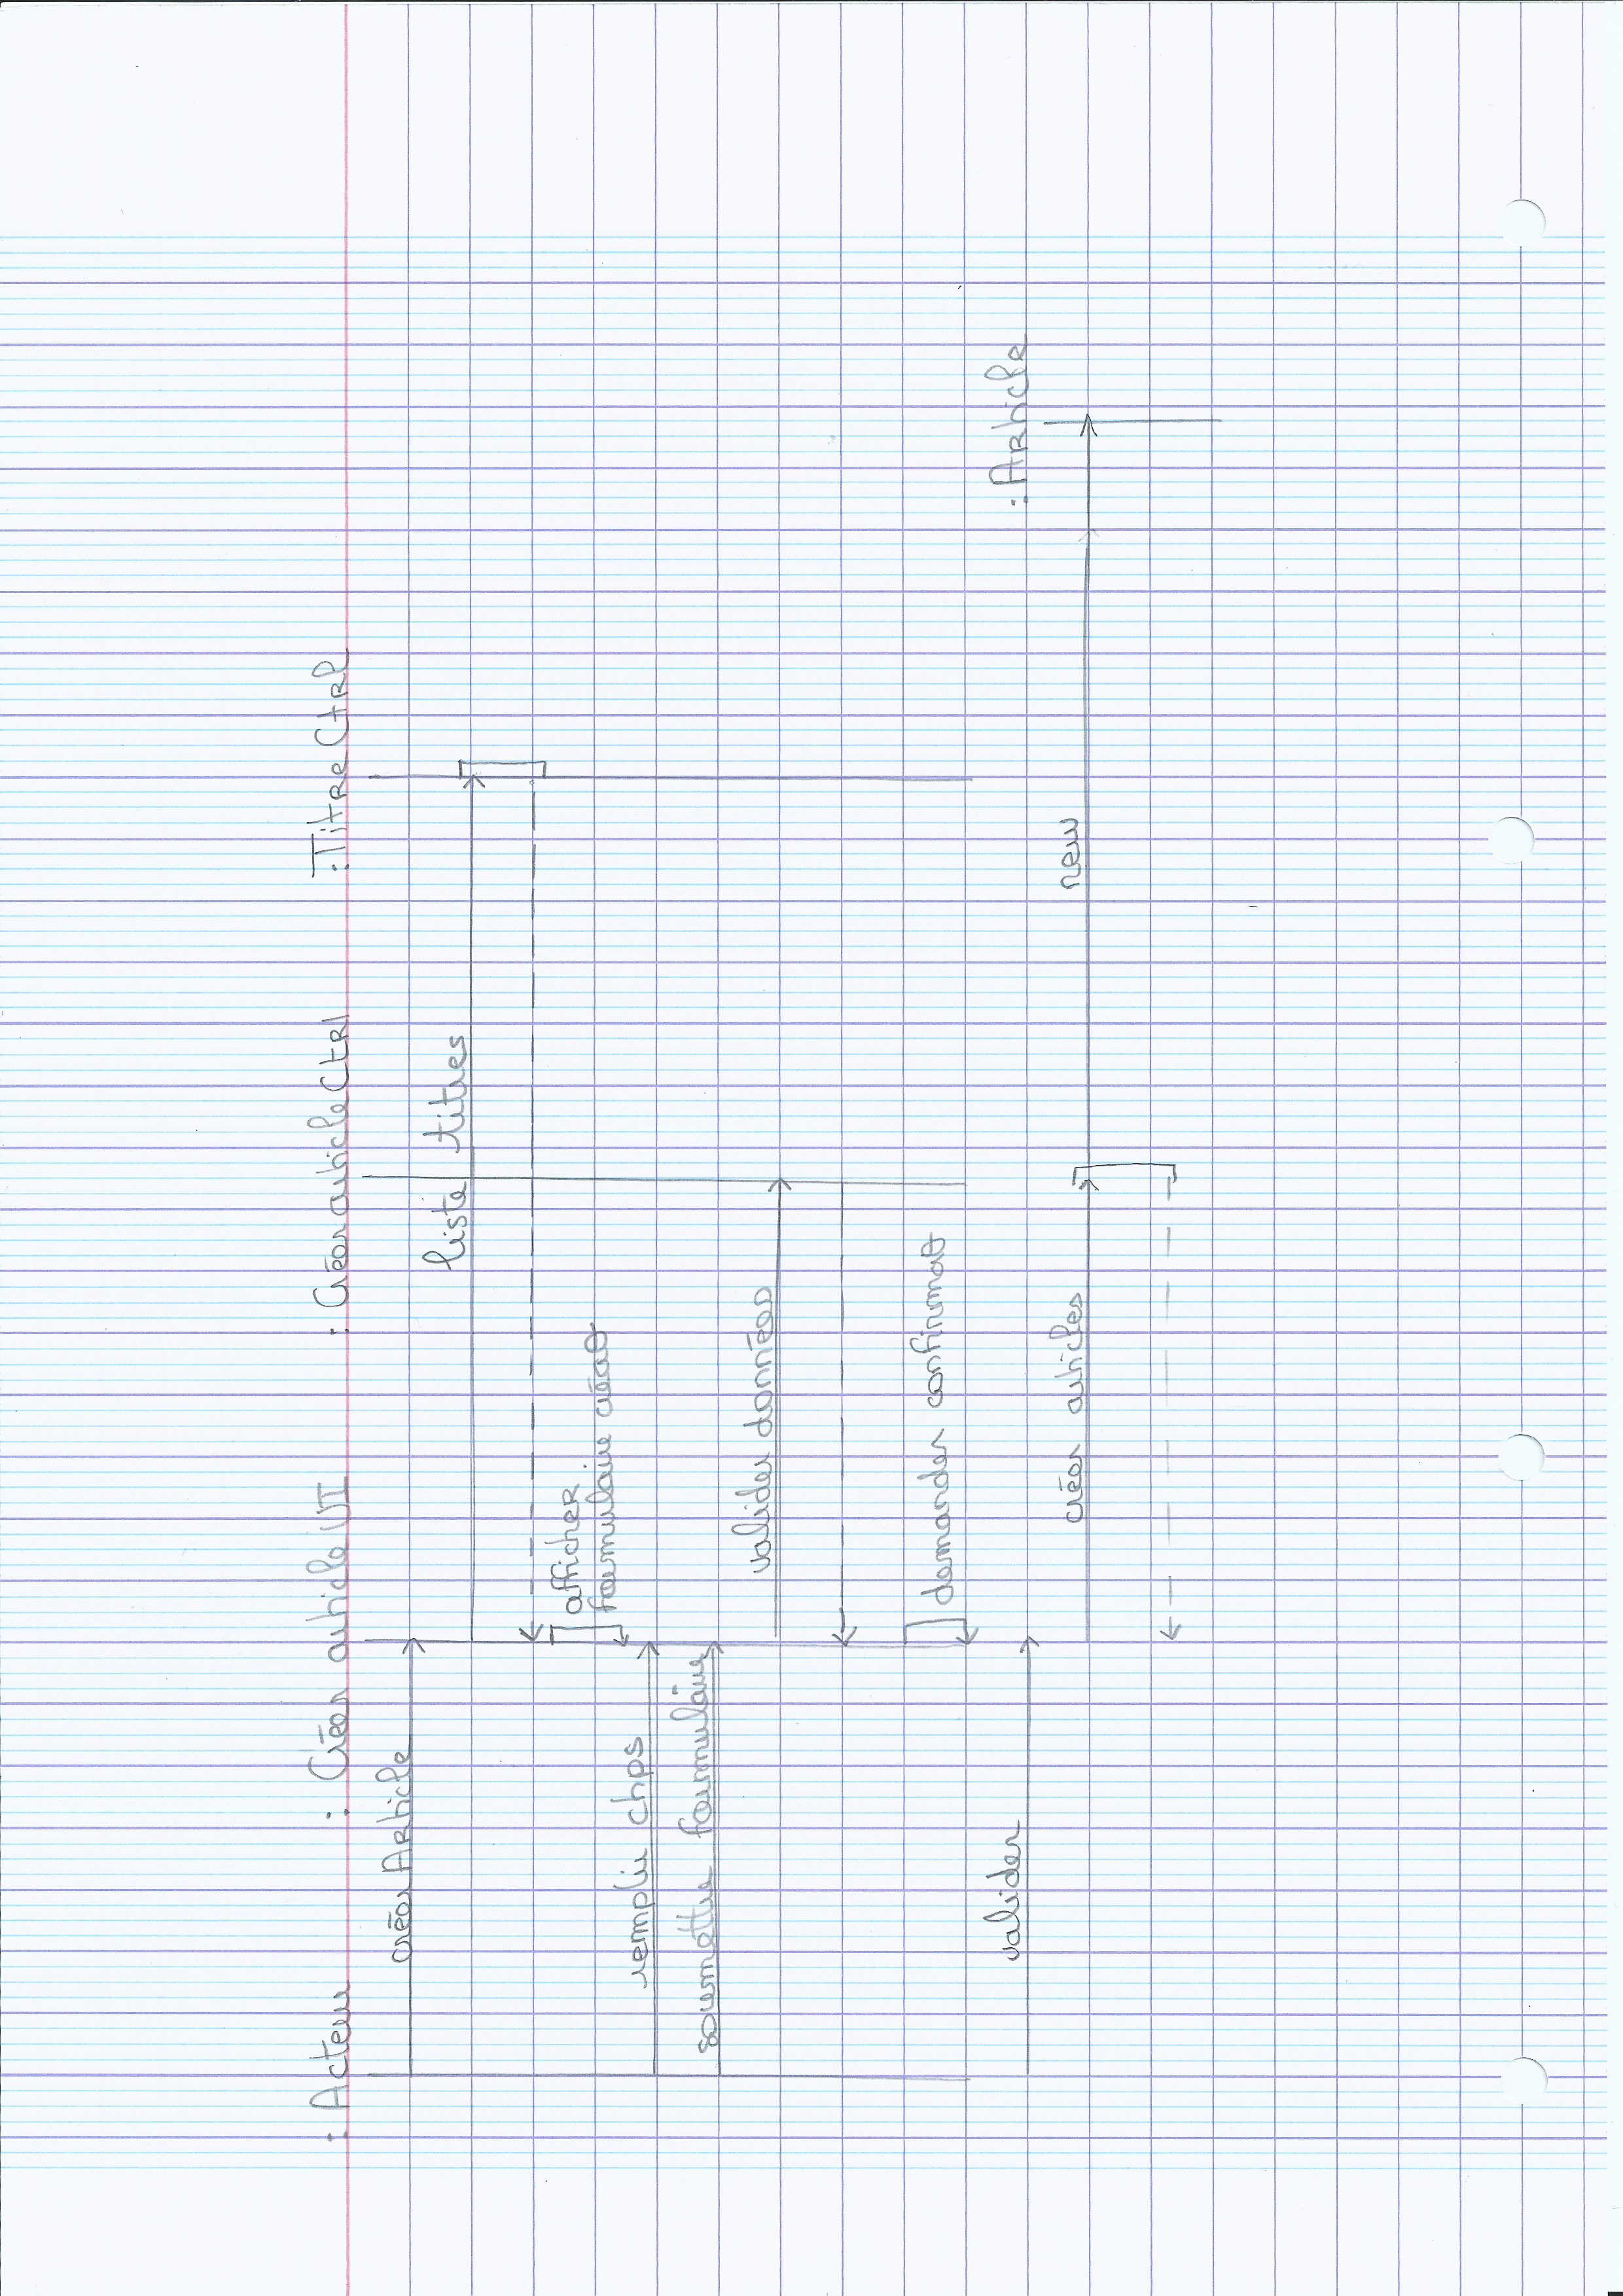 : Acteur
: Créer article UI
: Créer article Ctrl
: Titre Ctrl
créer Article
liste titres
afficher
formulaire créat°
remplir chps
soumettre formulaire
valider données
demander confirmat°
valider
: Article
créer articles
new